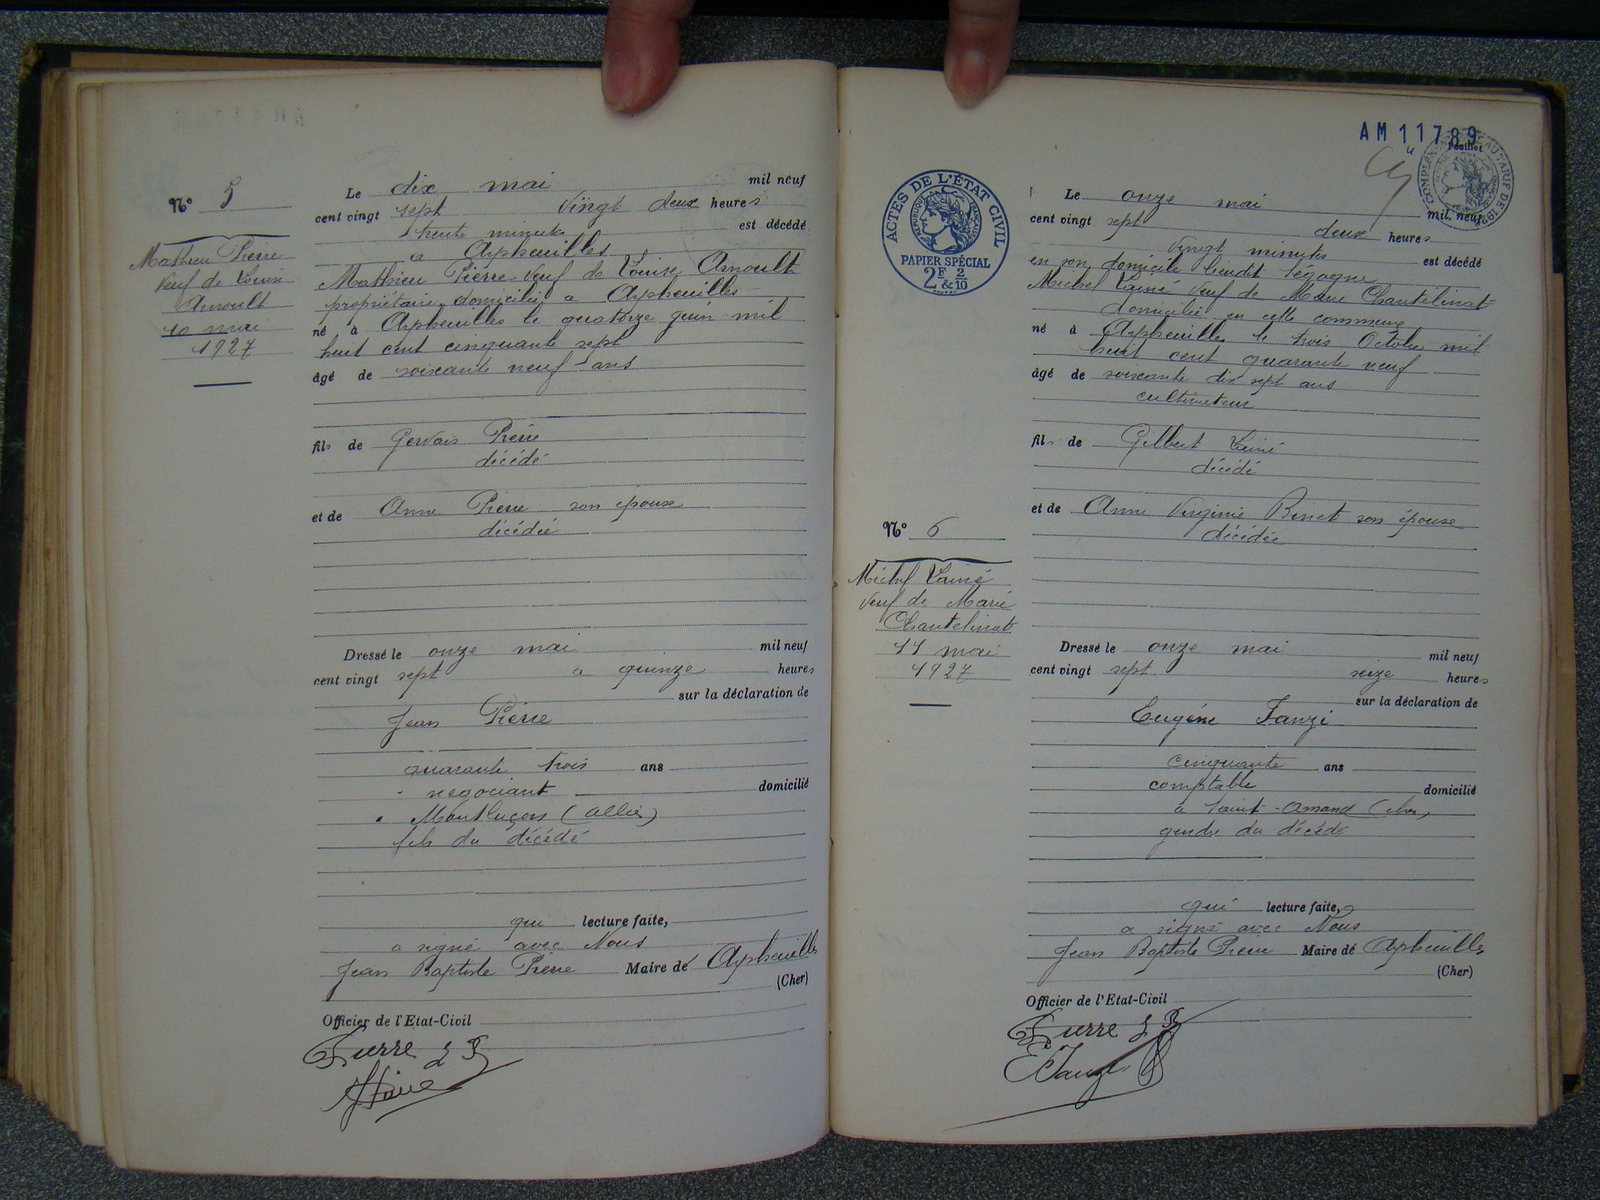 N° 5
Mathieu Pierre
veuf de Louise
Arnoult
10 mai
1927
Le dix mai mil neuf
cent vingt sept vingt deux heures
trente minutes est décédé
à Arpheuilles
Mathieu Pierre veuf de Louise Arnoult
propriétaire domicilié à Arpheuilles
né à Arpheuilles le quatorze juin mil
huit cent cinquante sept
âgé de soixante neuf ans
fils de Gervais Pierre
décédé
et de Anne Pierre son épouse
décédée
Dressé le onze mai mil neuf
cent vingt sept à quinze heures
sur la déclaration de
Jean Pierre
quarante trois ans
négociant domicilié
à Montluçon (Allier)
fils du décédé
qui lecture faite,
a signé avec Nous
Jean Baptiste Pierre Maire de Arpheuilles
(Cher)
Officier de l'Etat-Civil
Pierre J B
AM 11789
Feuillet
ACTES DE L'ÉTAT CIVIL
RÉPUBLIQUE FRANÇAISE
PAPIER SPÉCIAL
2F 2/10
&
N° 6
Michel Lainé
veuf de Marie
Chautelinat
11 mai
1927
Le onze mai mil neuf
cent vingt sept deux heures
vingt minutes est décédé
en son domicile lieudit Segogne
Michel Lainé veuf de Marie Chautelinat
domicilié en cette commune
né à Arpheuilles le trois Octobre mil
huit cent quarante neuf
âgé de soixante dix sept ans
cultivateur
fils de Gilbert Lainé
décédé
et de Anne Virginie Binet son épouse
décédée
Dressé le onze mai mil neuf
cent vingt sept seize heures
sur la déclaration de
Eugène Fanzi
cinquante ans
comptable domicilié
à Saint-Amand (Cher)
gendre du décédé
qui lecture faite,
a signé avec Nous
Jean Baptiste Pierre Maire de Arpheuilles
(Cher)
Officier de l'Etat-Civil
Pierre J B